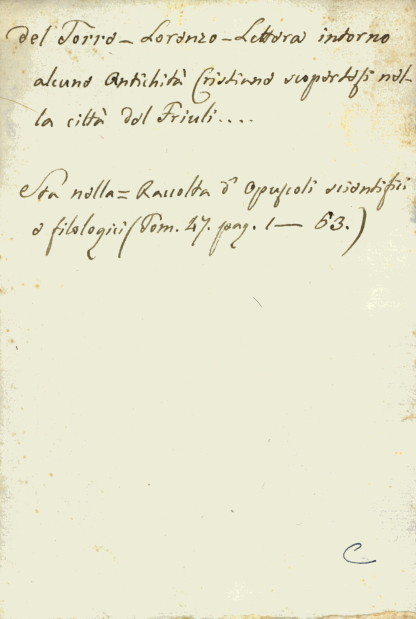 del Torre - Lorenzo - Lettera intorno
alcune Antichità Cristiane scopertesi nel-
la città del Friuli....
Sta nella = Raccolta d' Opuscoli scientifici
e filologici (Tom. 47. pag. 1 — 63.)
C